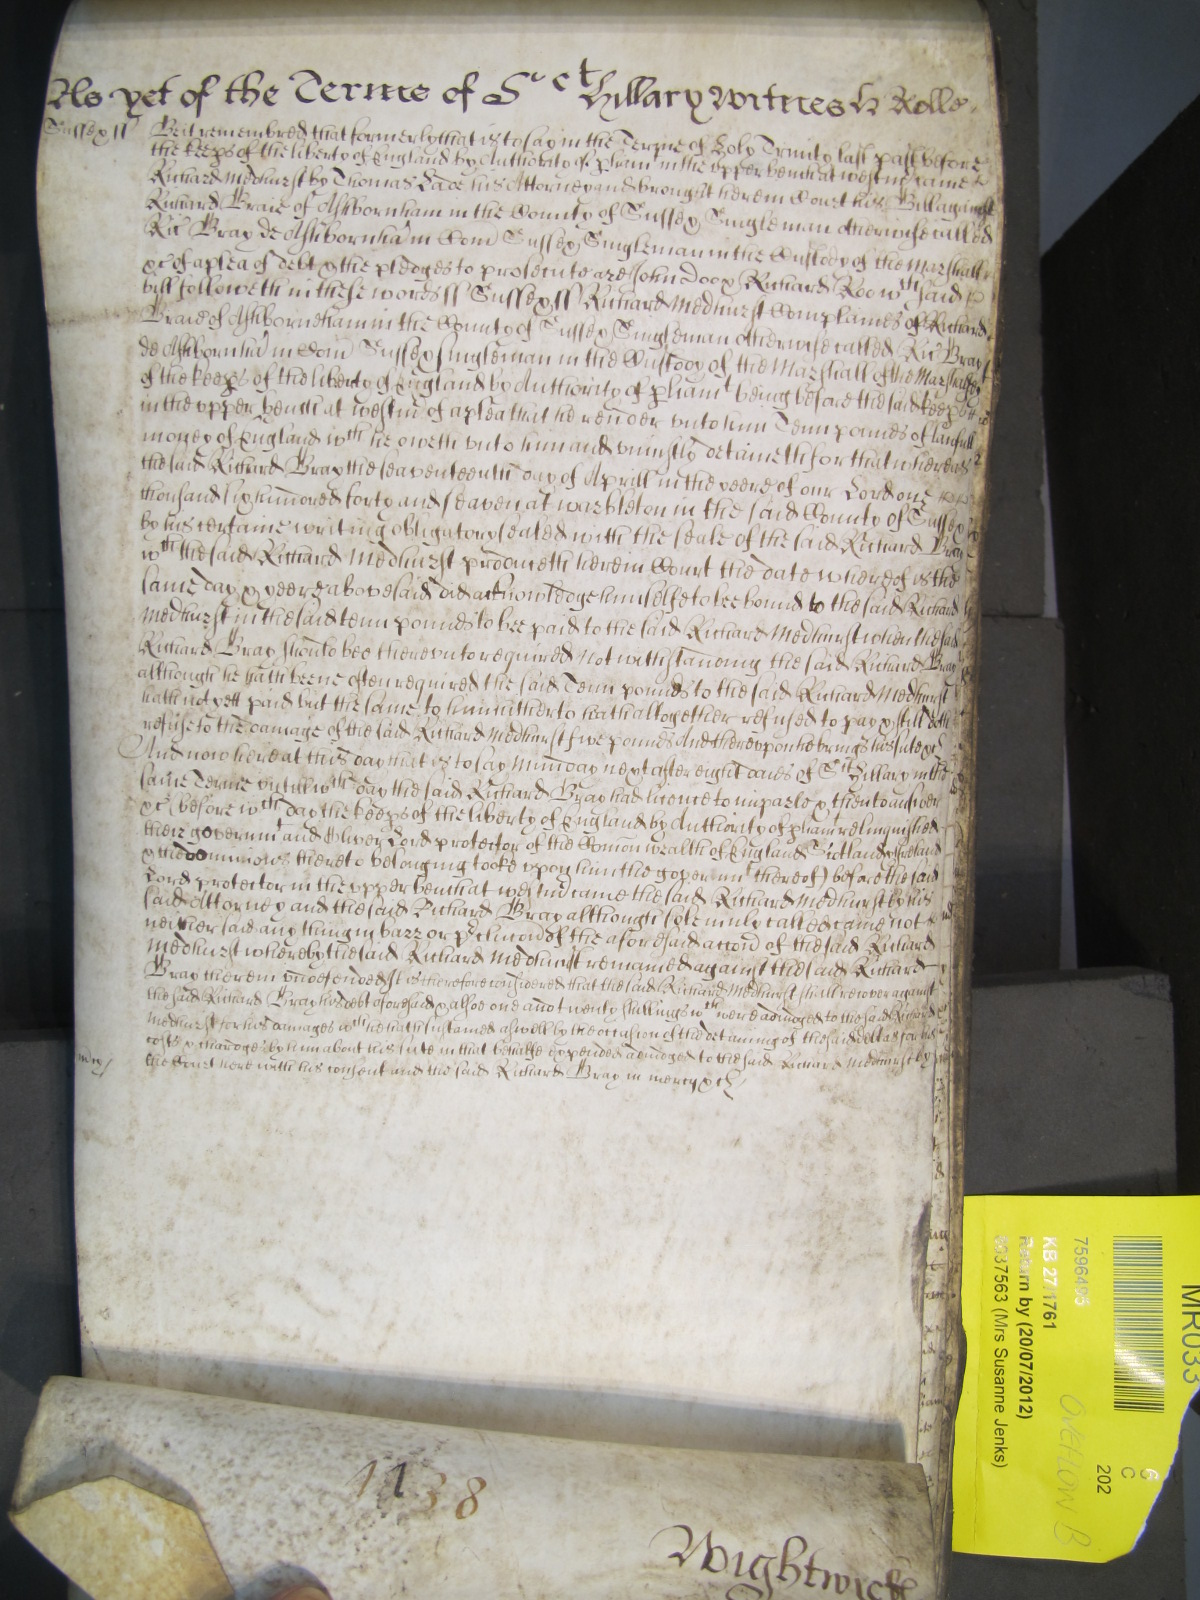 As yet of the Terme of St Hillary Witnes H Rolle.
Sussex ss Be it remembred that formerly that is to say in the Terme of Holy Trinity last past before
the keeps of the liberty of England by Authority of pliam in the upper bench at Westmr came
Richard Medhurst by Thomas Lade his Attorney and brought here in Court his Bill against
Richard Braie of Ashbornham in the County of Sussex Singleman otherwise called
Ric Bray de Ashbornham in Com Sussex Singleman in the Custody of the Marshall
&c of a plea of debt & the pledges to prosecute are John Doo & Richard Roo wch said
bill followeth in these words ss Sussex ss Richard Medhurst Complaines of Richard
Braie of Ashborneham in the County of Sussex Singleman otherwise called Ric Bray
de Ashbornham in Com Sussex singleman in the Custody of the Marshall of the Marshalsey
of the keeps of the liberty of England by Authority of pliamt being before the said keeps
in the upper bench at Westmr of a plea that he render unto him Tenn pounds of lawfull
money of England wch he oweth unto him and uniustly detaineth for that whereas
the said Richard Bray the seaventeenth day of Aprill in the yeere of our Lord one
thousand six hundred forty and seaven at Warbleton in the said County of Sussex
by his certaine writing obligatory sealed with the seale of the said Richard Bray
wch the said Richard Medhurst produceth here in Court the date whereof is the
same day & yeere abovesaid did acknowledge himselfe to bee bound to the said Richard
Medhurst in the said tenn pounds to bee paid to the said Richard Medhurst when the said
Richard Bray should bee thereunto required Notwithstanding the said Richard Bray
although he hath beene often required the said Tenn pounds to the said Richard Medhurst
hath not yett paid but the same to him hitherto hath altogether refused to pay & still doth
refuse to the damage of the said Richard Medhurst five pounds And thereupon he brings his suite &c
And now here at this day that is to say Munday next after eight daies of St Hillary in the
same Terme untill wch day the said Richard Bray had licence to imparle & then to answer
&c (before wch day the keeps of the liberty of England by Authority of pliamt relinquished
their governmt and Oliver Lord protector of the Comon wealth of England Scotland & Ireland
& the dominions thereto belonging tooke upon him the governmt thereof) before the said
Lord protector in the upper bench at Westmr came the said Richard Medhurst by his
said Attorney and the said Richard Bray although solemnly called came not
neither said any thing in barr or preclucion of the aforesaid accon of the said Richard
Medhurst whereby the said Richard Medhurst remained against the said Richard
Bray therein undefended It is therefore considered that the said Richard Medhurst shall recover against
the said Richard Bray his debt aforesaid & alsoe one and twenty shillings wch were adiudged to the said Richard
Medhurst for his damages wch he hath susteined aswell by the occasion of the detaining of the said debt as for his
costs & charges by him about his suite in that behalfe expended adiudged to the said Richard Medhurst by
mcy the Court here with his consent and the said Richard Bray in mercy &c
1138
Wightwick
MR033
6
C
202
7596495
OVERFLOW B
KB 27/1761
Return by (20/07/2012)
(Mrs Susanne Jenks)